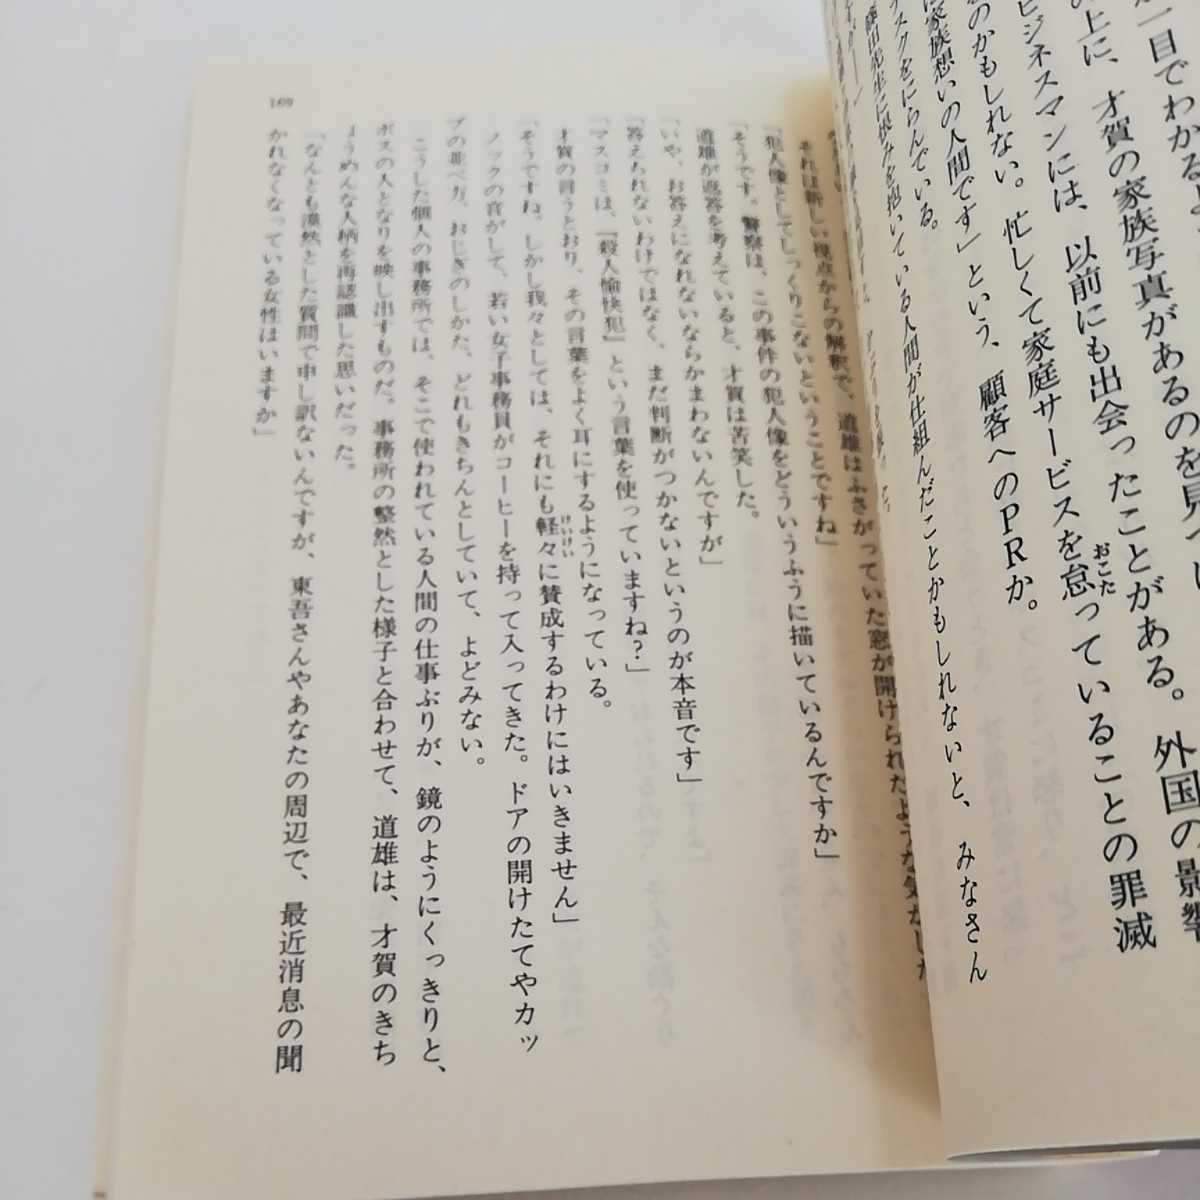 一目でわかる
の上に、才賀の家族写真があるのを見
ビジネスマンには、以前にも出会ったことがある。外国の影響
のかもしれない。忙しくて家庭サービスを怠っていることの罪滅
おこた
家族想いの人間です」という、顧客へのPRか。
スクをにらんでいる。
先生に恨みを抱いている人間が仕組んだことかもしれないと、みなさん
それは新しい視点からの解釈で、道雄はふさがっていた窓が開けられたような気がした
「犯人像としてしっくりこないということですね」
「そうです。警察は、この事件の犯人像をどういうふうに描いているんですか」
道雄が返答を考えていると、才賀は苦笑した。
「いや、お答えになれないならかまわないんですが」
「答えられないわけではなく、まだ判断がつかないというのが本音です」
「マスコミは、『殺人愉快犯』という言葉を使っていますね？」
才賀の言うとおり、その言葉をよく耳にするようになっている。
「そうですね。しかし我々としては、それにも軽々に賛成するわけにはいきません」
けいけい
ノックの音がして、若い女子事務員がコーヒーを持って入ってきた。ドアの開けたてやカッ
プの並べ方、おじぎのしかた、どれもきちんとしていて、よどみない。
こうした個人の事務所では、そこで使われている人間の仕事ぶりが、鏡のようにくっきりと、
ボスの人となりを映し出すものだ。事務所の整然とした様子と合わせて、道雄は、才賀のきち
ょうめんな人柄を再認識した思いだった。
「なんとも漠然とした質問で申し訳ないんですが、東吾さんやあなたの周辺で、最近消息の聞
かれなくなっている女性はいますか」
169